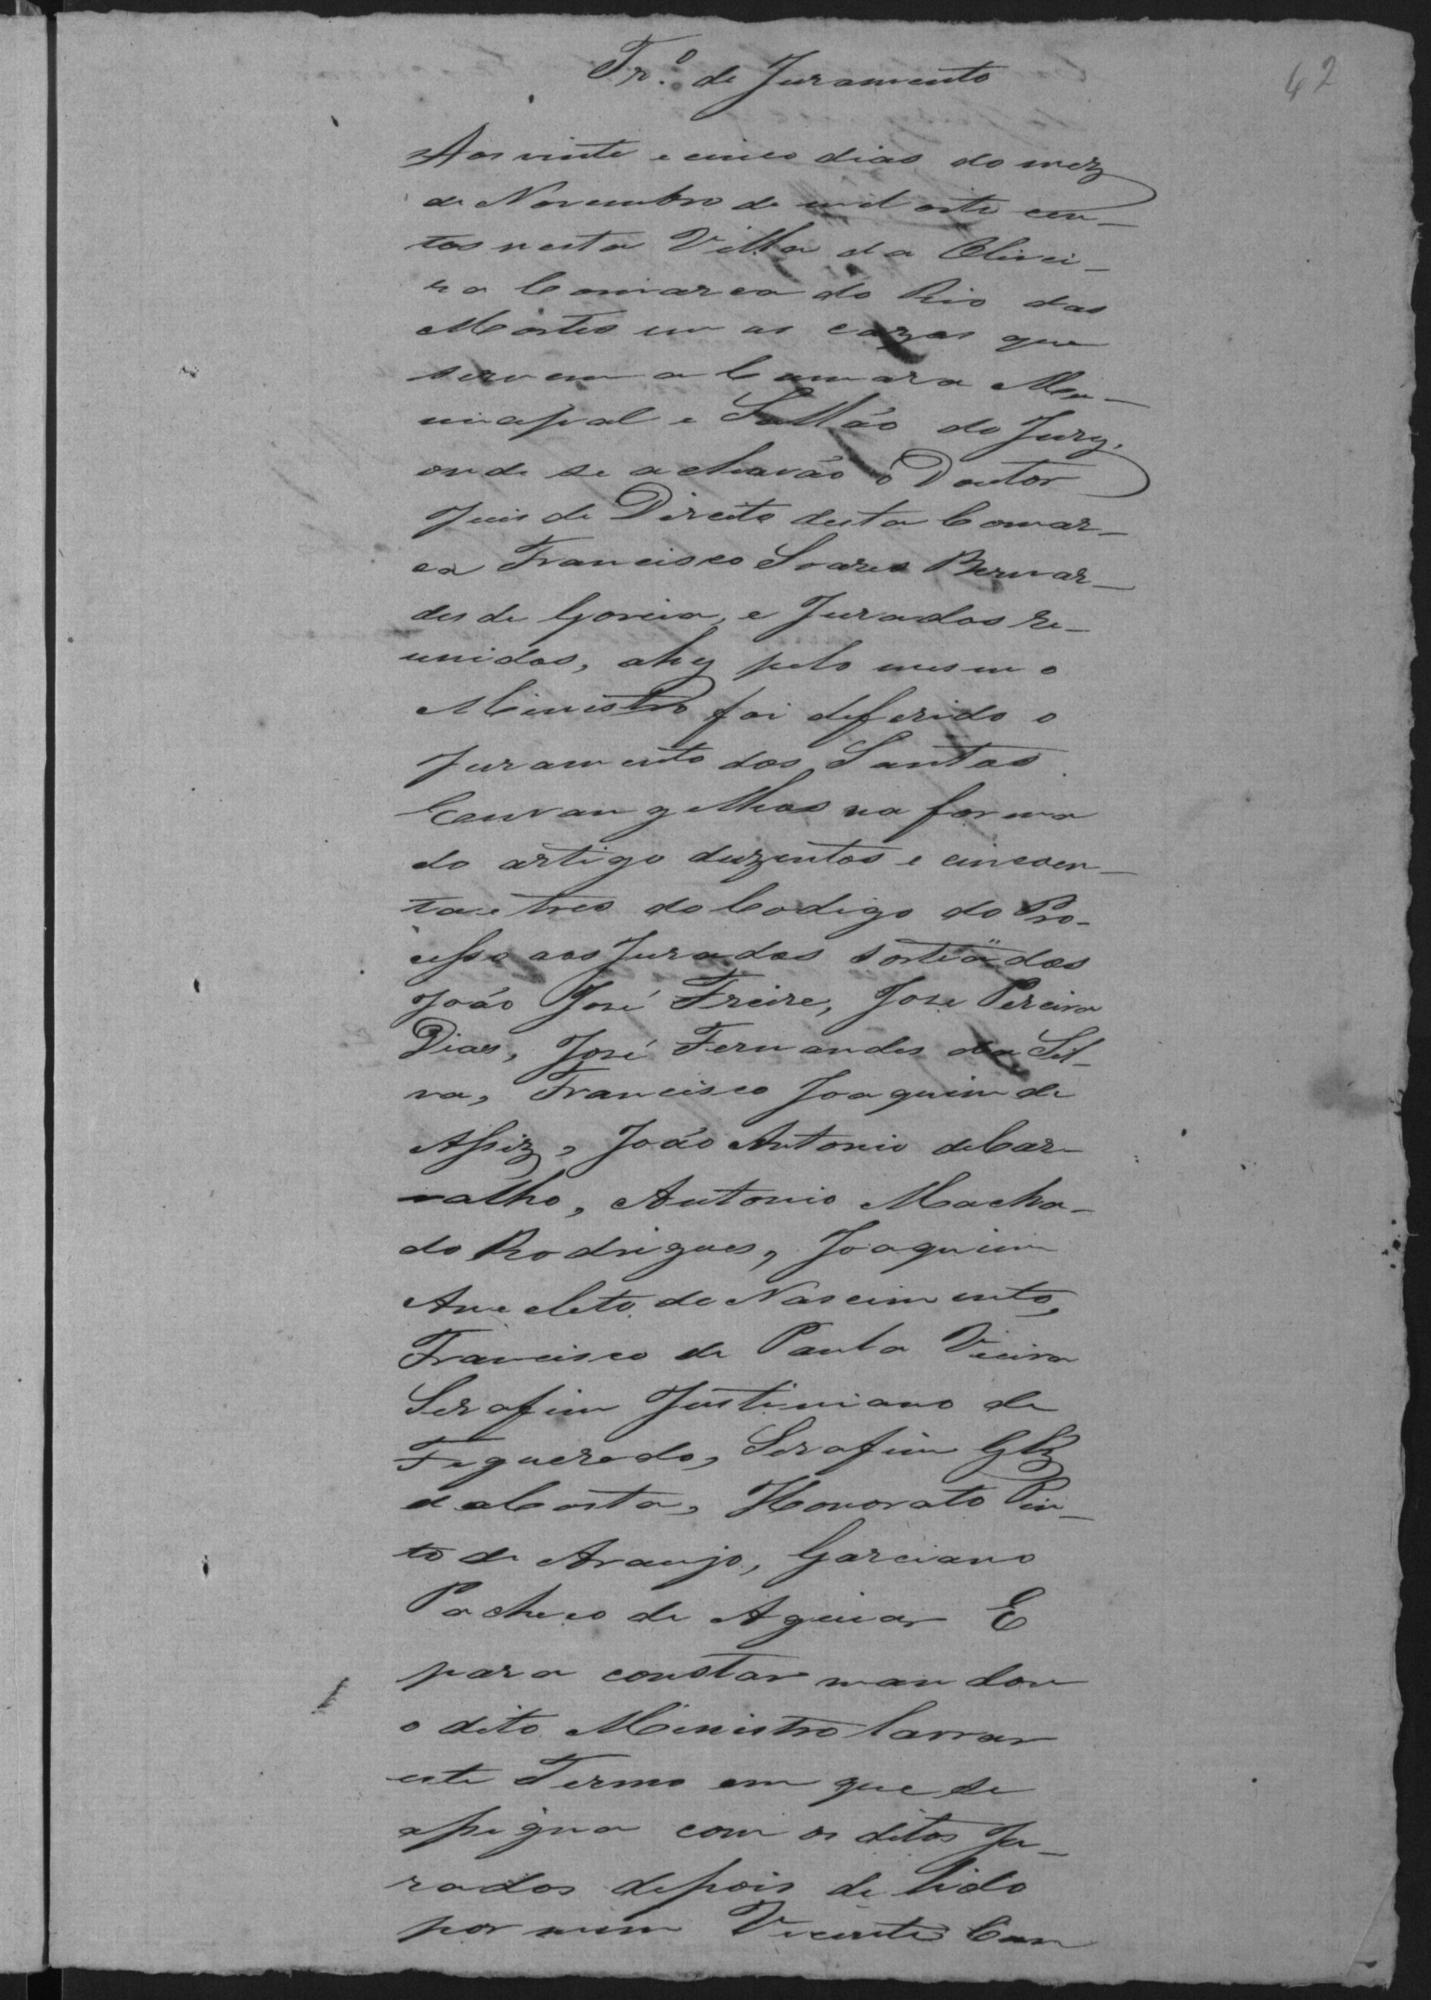 42
Tr.º de Juramento
Aos vinte e cinco dias do mez
de Novembro de mil oito cen-
tos nesta Villa da Olivei-
ra Comarca do Rio das
Mortes em as cazas que
servem a Camara Mu-
nicipal e Sallão do Jury,
onde se achavão o Doutor
Juis de Direito desta Comar-
ca Francisco Soares Bernar-
des de Goveia, e Jurados re-
unidos, ahy pelo mesmo
Ministro foi deferido o
juramento dos Santos
Euvangelhos na forma
do artigo duzentos e cincoen-
ta e tres do Codigo do Pro-
cesso aos Jurados sorteados
João José Freire, Jose Pereira
Dias, José Fernandes da Sil-
va, Francisco Joaquim de
Assiz, João Antonio de Car-
valho, Antonio Macha-
do Rodrigues, Joaquim
Anecleto do Nascimento,
Francisco de Paula Vieira
Serafim Justiniano de
Figueredo, Serafim Glz
da Costa, Honorato Pin-
to de Araujo, Garciano
Pacheco de Aguiar E
para constar mandou
o dito Ministro lavrar
este Termo em que se
assigna com os ditos Ju-
rados depois de lido
por mim Vicente Can